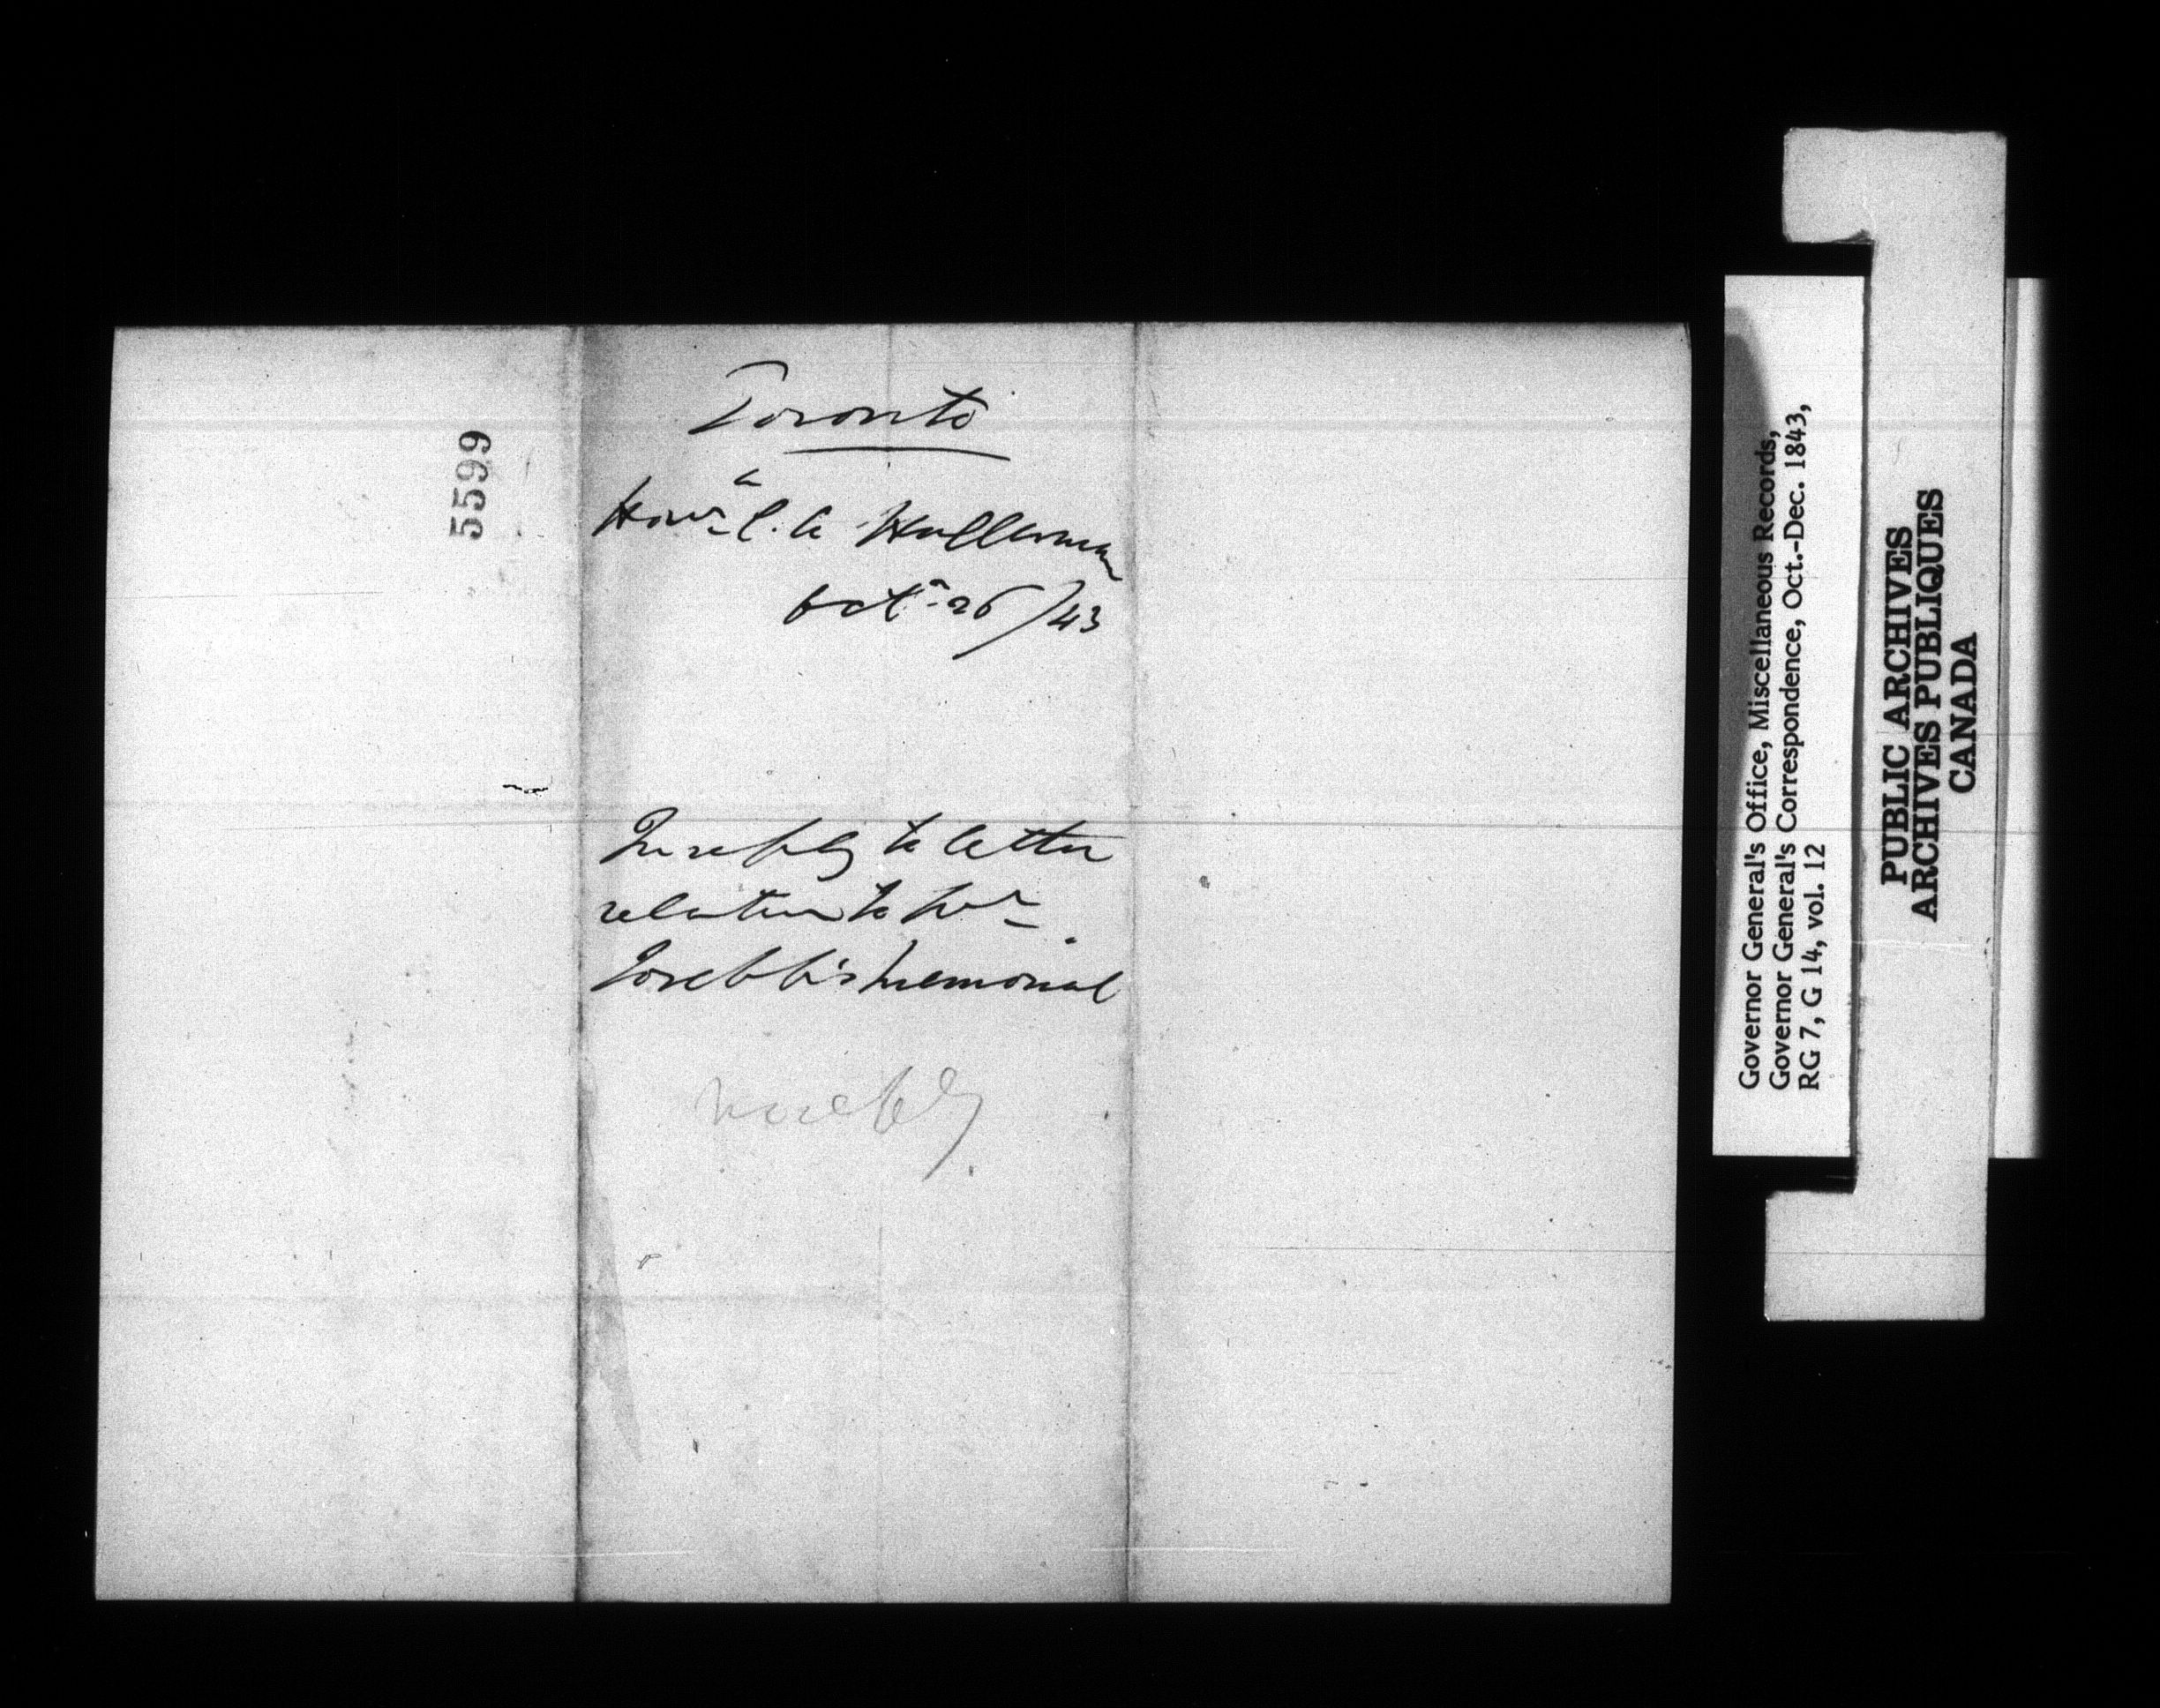 5599
Toronto
Honble C. A. Hagerman
Octr 26/43
In reply to letter
relative to Mr
memorial
no reply
Governor General's Office, Miscellaneous Records,
Governor General's Correspondence, Oct.-Dec. 1843,
RG 7, G 14, vol. 12
PUBLIC ARCHIVES
ARCHIVES PUBLIQUES
CANADA